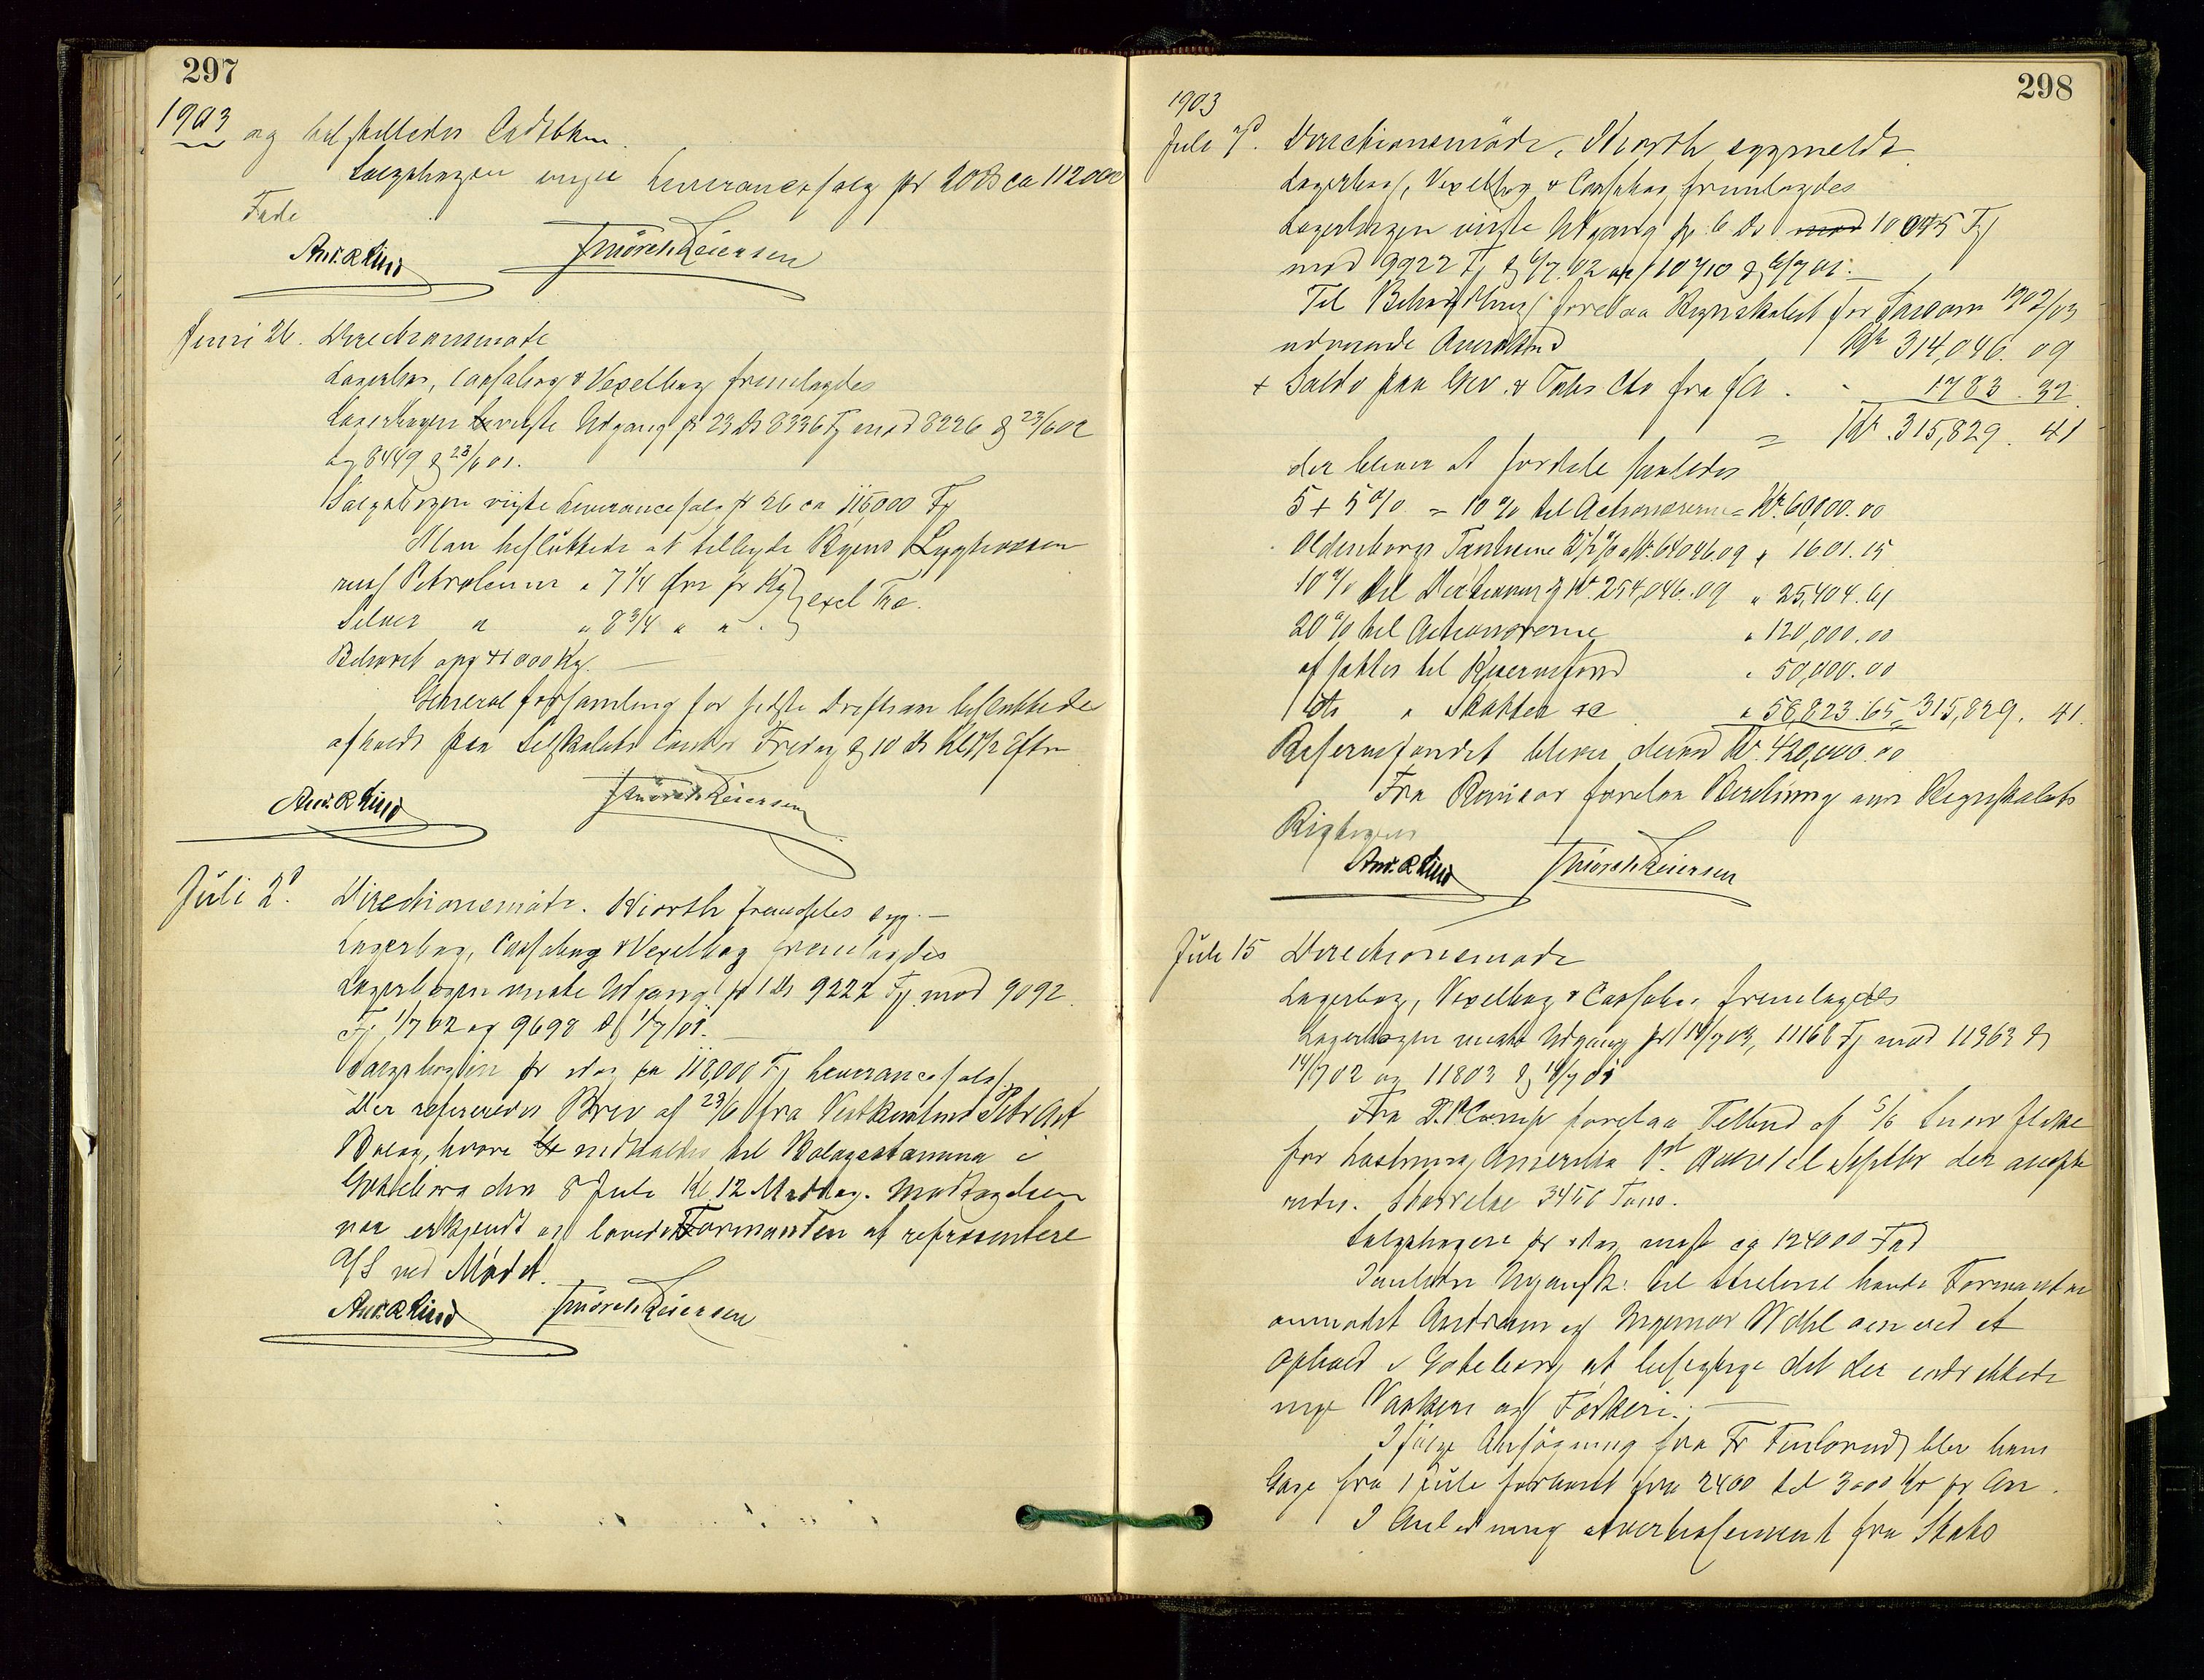 297
1903 og
Salgsbogen Leverancesalg pr 20 ds ca 112000
Fade
Andr. R Lind J Mörch Reiersen
Juni 26. Directionsmøde
Lagerbog, Cassabog & Vexelbog fremlagdes
Lagerbogen viiste Udgang pr 23 ds 8336 Fj mod 8226 23/6 02
og 8449 23/6 01.
Salgsbogen viiste Leverancesalg pr 26 ca 115000 Fj
Man besluttede at tilbyde
Petroleum a 7 1/4 Øre pr Kg } excl
8 3/4 " " .
Behovet 000 Kg.
Generalforsamling for sidste Driftsaar besluttedes
afholdt paa Selskabets Contor Fredag 10 ds Kl Eftm
Andr. R Lind J Mörch Reiersen
Juli 2d. Directionsmøde. Hiorth fremdeles syg. -
Lagerbog, Cassabog & Vexelbog fremlagdes
Lagerbogen viiste Udgang pr 1 ds 9222 Fj mod 9092
Fj 1/7 02 og 9698 1/7 01.
Salgsbogen pr idag ca 118,000 Fj Leverancesalg.
Der refereredes Brev af 23/6 fra Vestkustens Petr Akt
Bolag, hvori indkaldes til Bolagsstämma i
Göteborg den 8 Juli Kl. 12 Middag. Modtagelsen
var erkjendt og lovede Formanden at repræsentere
A/S ved Mödet.
Andr. R Lind J Mörch Reiersen
298
1903
Juli 7d. Directionsmöde, Hiorth sygmeldt.
Lagerbog, Vexelbog & Cassabog fremlagdes
Lagerbogen viiste Udgang pr 6 ds 10045 Fj
mod 9922 Fj 6/7 02 og 10710 6/7 01.
Til Behandling forelaa Regnskabet for Aaret 1902/03
udvisende Overskud Kr 314,046. 09
+ Saldo paa Gev. & Tabs Cto fra f A . - 1783. 32
= Kr. 315,829. 41
der bliver at fordele saaledes
5 + 5 % = 10 % til Actionærerne = Kr. 60,000.00
Oldenborgs Tantieme 2 1/2 % a Kr. 64046.09 " 1601.15
10 % til Direktionen af Kr. 254,046.09 " 25,404.61
20 % til Actionærerne " 120,000.00
afsættes til Reservefond " 50,000.00
do " Skatter &c " 58,823.65 = 315,829. 41.
Reservefondet bliver derved Kr. 420,000.00
Fra Revisor forelaa Erklæring om Regnskabets
Rigtighed
Andr. R Lind J Mörch Reiersen
Juli 15 Directionsmøde
Lagerbog, Vexelbog & Cassabog fremlagdes
Lagerbogen viiste Udgang pr 14/7 03, 11168 Fj mod 11963
14/7 02 og 11803 14/7 01
Fra forelaa Tilbud af
for Lastning Amerika til Septbr der accepte
redes. Størrelse 3450 Tons.
Salgsbogen pr idag viiste ca 124000 Fad
havde Formanden
anmodet og ved et
Ophold i Göteborg at besigtige det der indrettede
nye og
Ifølge Ansögning fra blev hans
Gage fra 1 Juli forhøiet fra 2400 til 3000 Kr pr Aar.
I Anledning Avertissement fra Stats